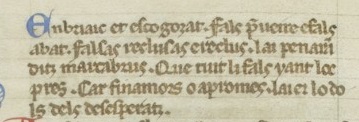 Enbriaic et escogozat. fals p̃uerre efals
abat. falsas recluſas erecluſ. lai penaran
ditz marcabrus. Que tuit li fals y ant loc
pres. Car finamors o a promes. lai er lo do
ls dels desesperatz.